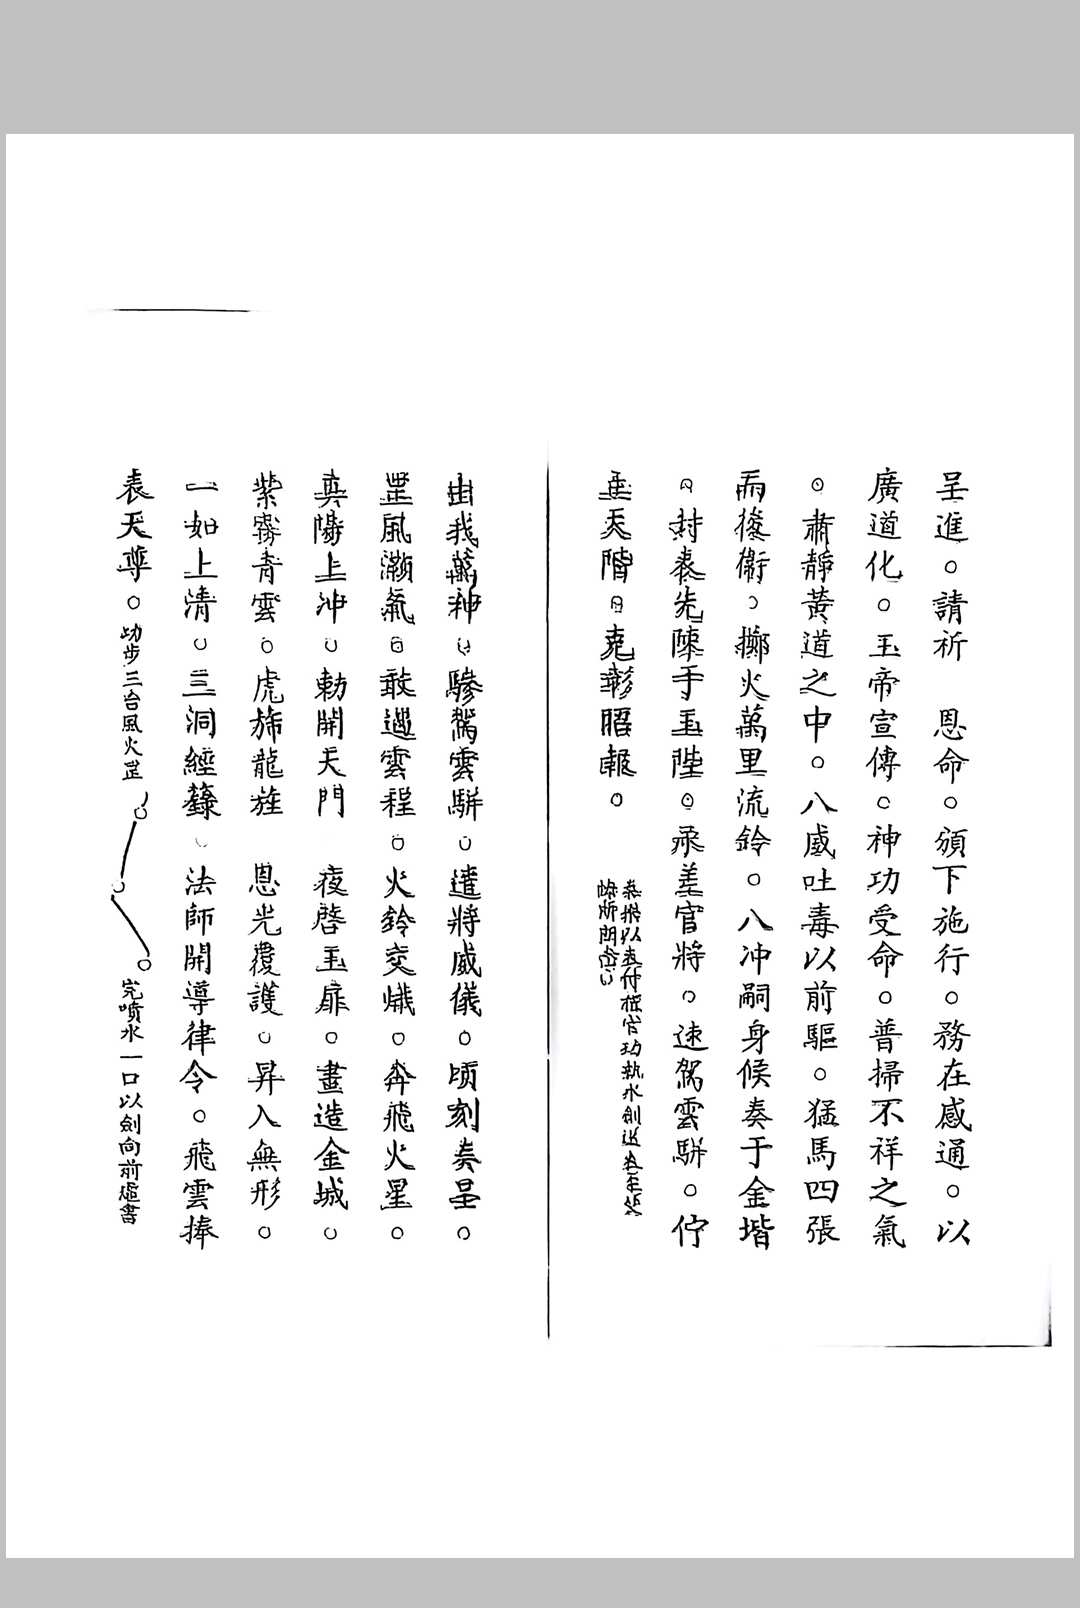 呈進。請祈　恩命。頒下施行。務在感通。以
廣道化。玉帝宣傳。神功受命。普掃不祥之氣
。肅靜黃道之中。八威吐毒以前驅。猛馬四張
而後衛。擲火萬里流鈴。八冲嗣身候奏于金堦
。封奏先陳于玉陛。承差官將。速駕雲駢。佇
玉天階。克彰昭報。
由我萬神。驂駕雲駢。遣將威儀。頃刻奏呈。
罡風灝氣。敢遏雲程。火鈴交熾。奔飛火星。
真陽上冲。勅開天門　夜啓玉扉。畫造金城。
紫霧青雲。虎旆龍旌　恩光覆護。昇入無形。
一如上清。三洞經籙。法師開導律令。飛雲捧
表天尊。功步三台風火罡
完噴水一口以劍向前虛書